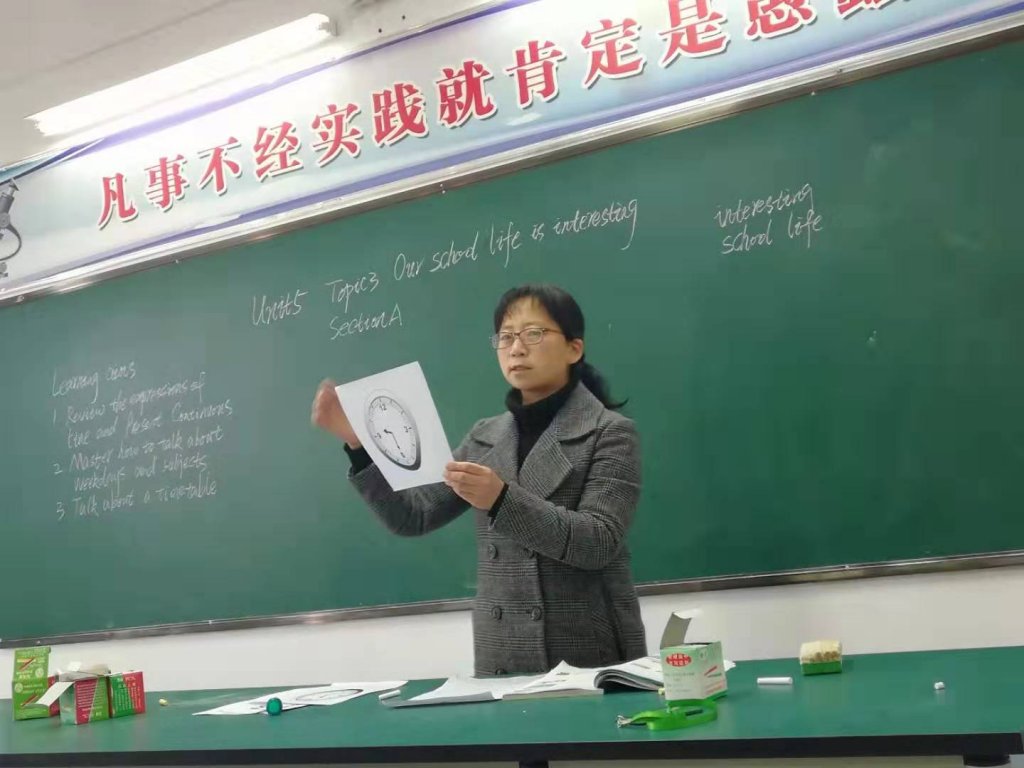 凡事不经实践就肯定是愚蠢
Unit5 Topic3 Our school life is interesting
Section A
interesting
school life
Learning aims
1. Review the expressions of
time and Present Continuous
2 Master how to talk about
weekdays and subjects
3 Talk about a timetable
12
3
9